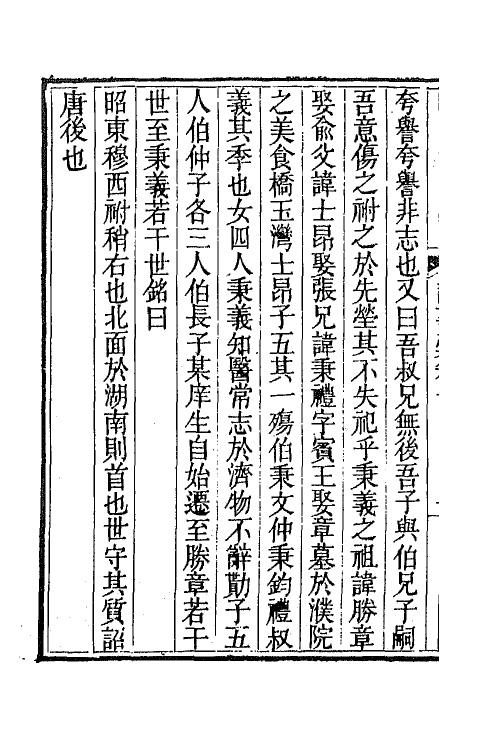 夸譽夸譽非志也又曰吾叔兄無後吾子與伯兄子嗣
吾意傷之祔之於先塋其不失祀乎秉義之祖諱勝章
娶兪父諱士昂娶張兄諱秉禮字賓王娶章墓於濮院
之美食橋玉灣士昂子五其一殤伯秉文仲秉鈞禮叔
義其季也女四人秉義知醫常志於濟物不辭勤子五
人伯仲子各三人伯長子某庠生自始遷至勝章若干
世至秉義若干世銘曰
昭東穆西祔稍右也北面於湖南則首也世守其質詔
唐後也